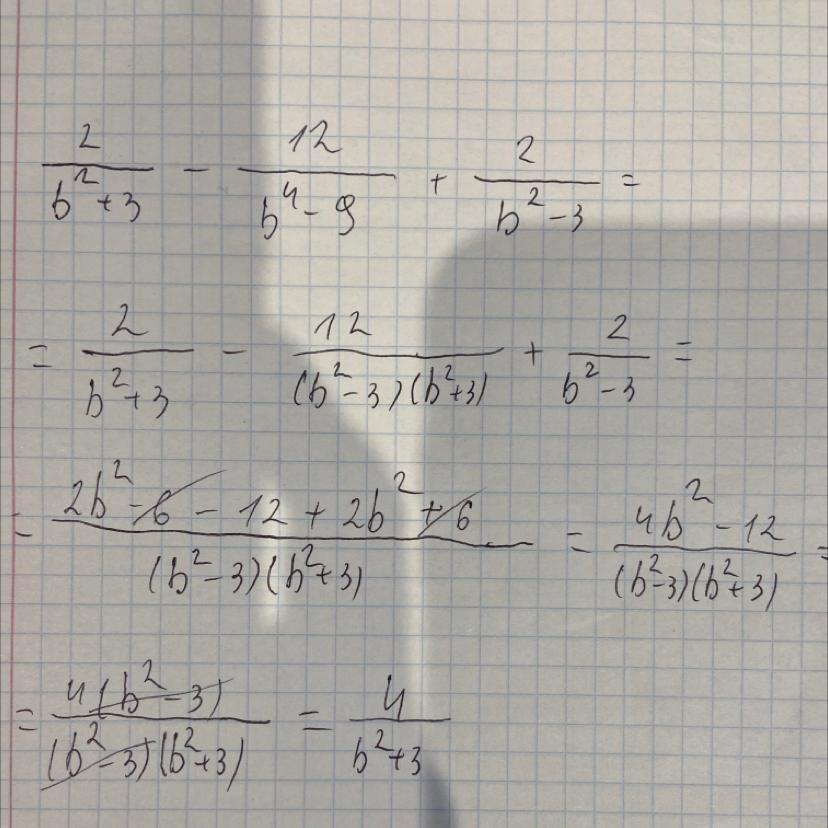 2/(b²+3) - 12/(b⁴-9) + 2/(b²-3) =
= 2/(b²+3) - 12/((b²-3)(b²+3)) + 2/(b²-3) =
= (2b²-6-12+2b²+6)/((b²-3)(b²+3)) = (4b²-12)/((b²-3)(b²+3)) =
= 4(b²-3)/((b²-3)(b²+3)) = 4/(b²+3)